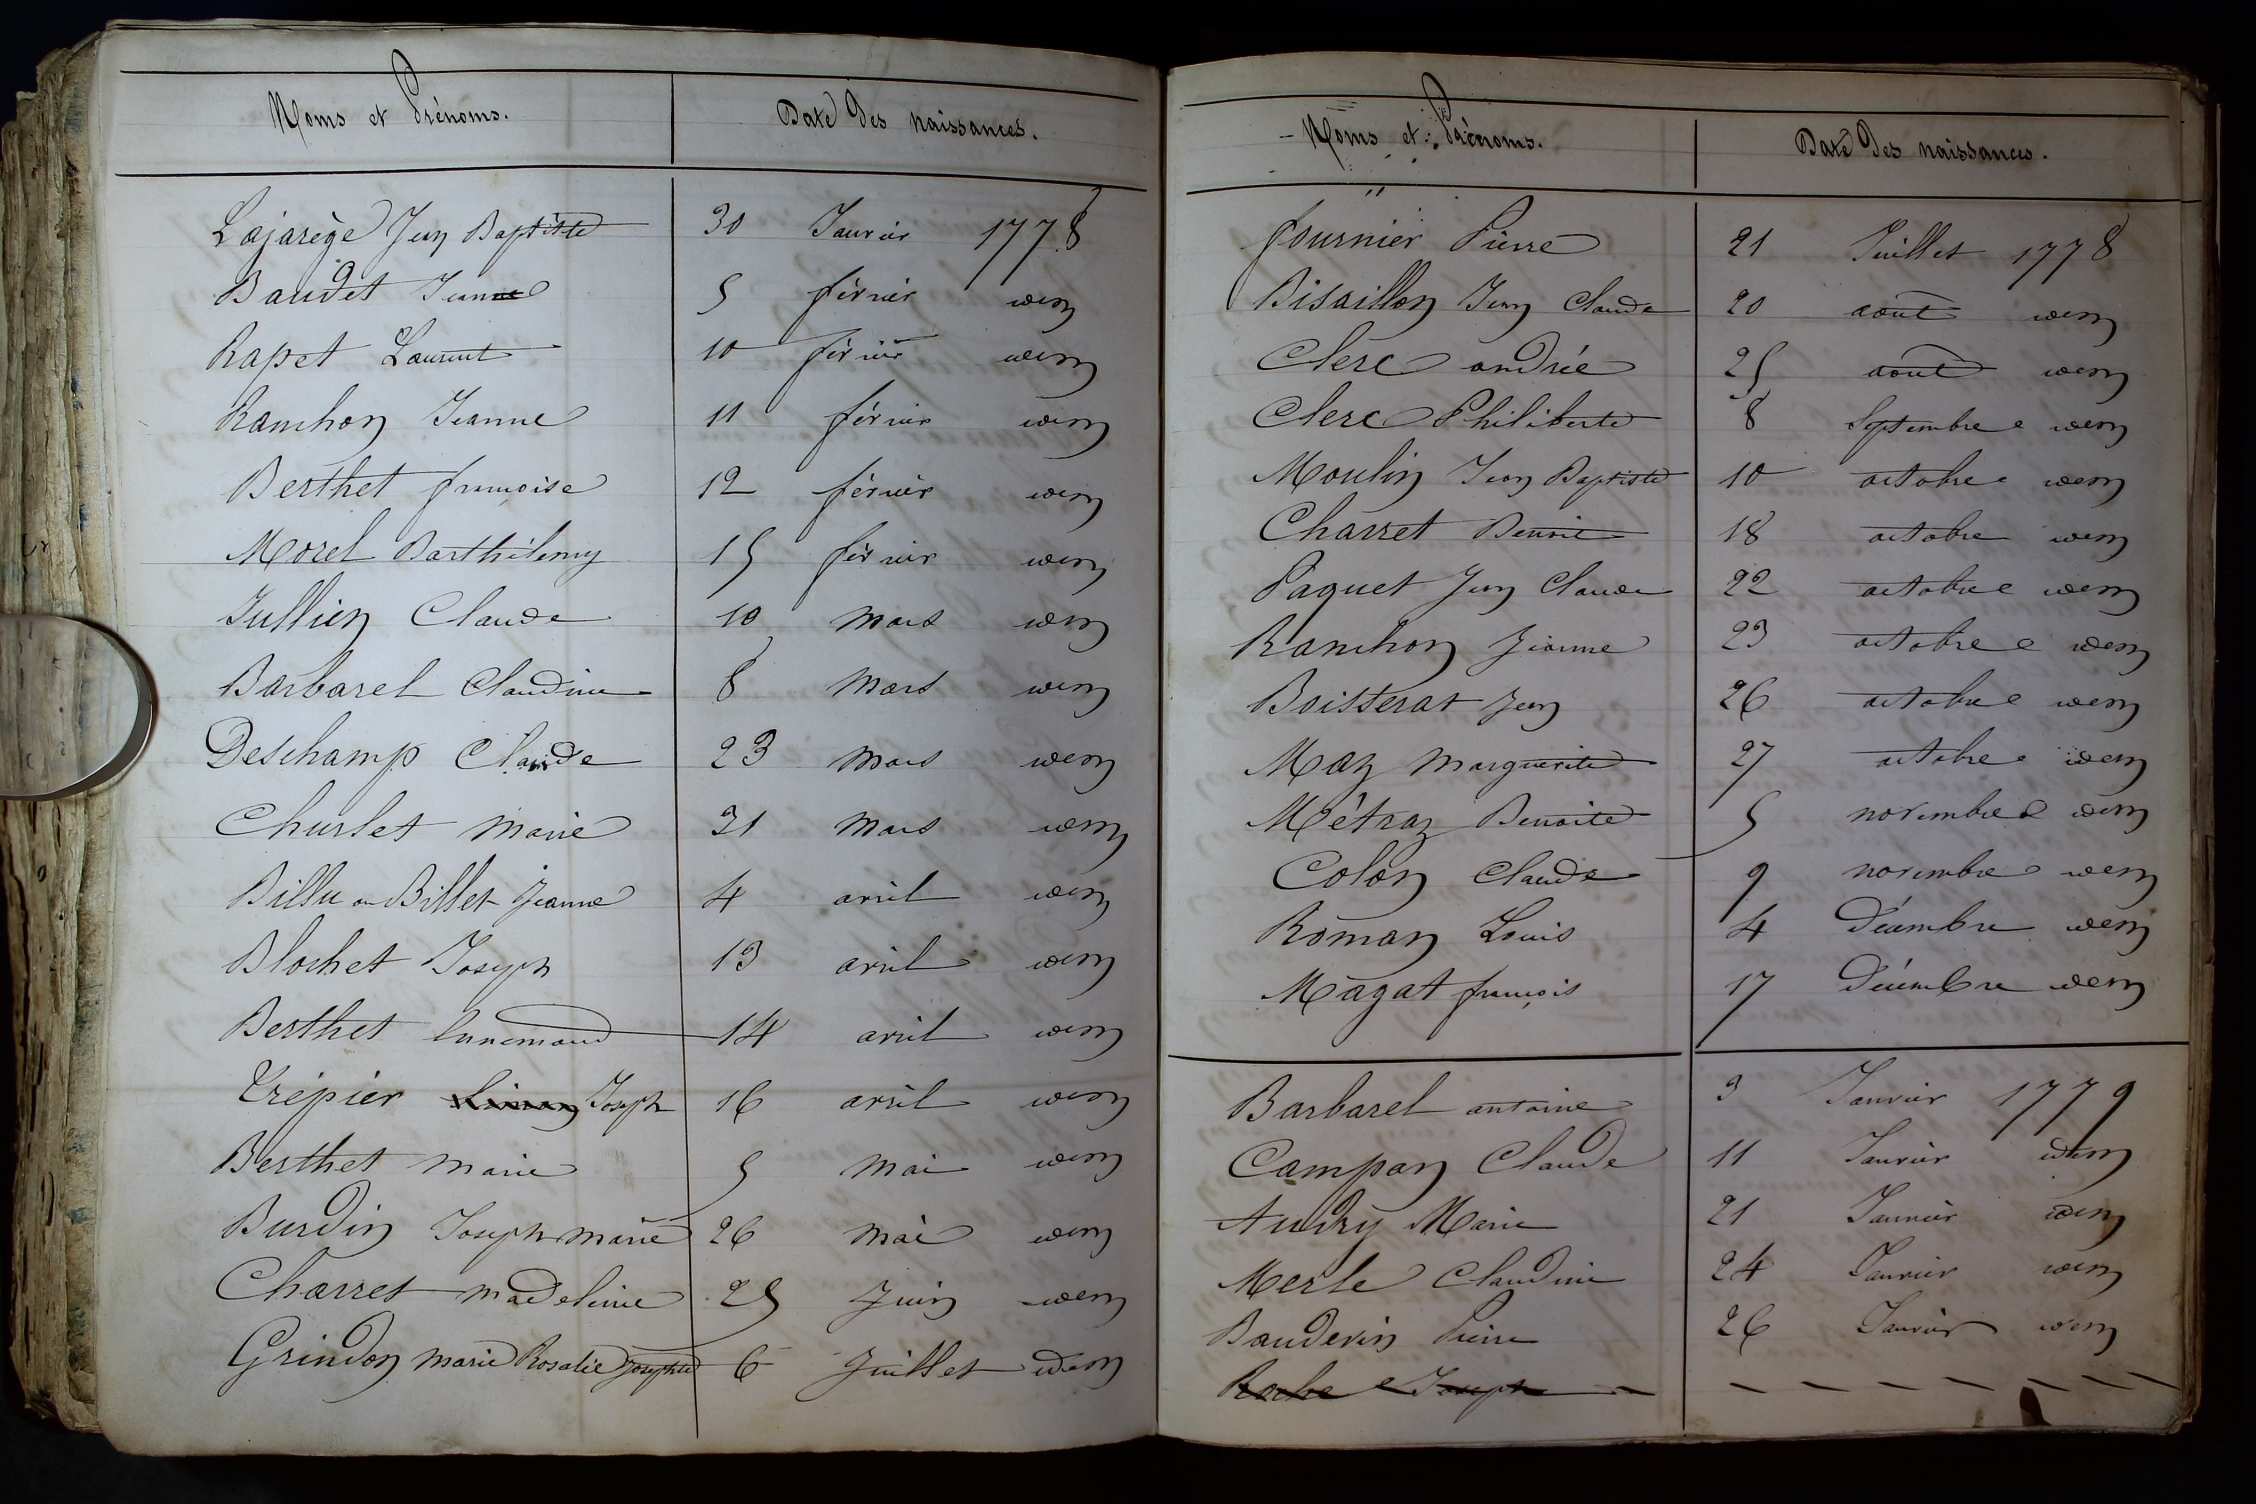 Noms et Prénoms. Date des naissances.
Lajarège Jean Baptiste 30 Janvier 1778
Baudet Jeanne 5 février idem
Rapet Laurent 10 février idem
Ranchon Jeanne 11 février idem
Berthet françoise 12 février idem
Morel Barthélemy 15 février idem
Jullien Claude 10 mars idem
Barbarel Claudine 8 mars idem
Deschamp Claude 23 mars idem
Churlet marie 31 mars idem
Billu ou Billet Jeanne 4 avril idem
Blochet Joseph 13 avril idem
Berthet Ennemond 14 avril idem
Trépier Joseph 16 avril idem
Berthet marie 5 mai idem
Burdin Joseph marie 26 mai idem
Charret madeleine 25 Juin idem
Grindon marie Rosalie Josephte 6 Juillet idem
Noms et Prénoms. Date des naissances.
fournier Pierre 21 Juillet 1778
Bisaillon Jean Claude 20 août idem
Clerc andrée 25 août idem
Clerc Philiberte 8 Septembre idem
Moulin Jean Baptiste 10 octobre idem
Charret Benoit 18 octobre idem
Paquet Jean Claude 22 octobre idem
Ranchon Jeanne 23 octobre idem
Boisserat Jean 26 octobre idem
Maz marguerite 27 octobre idem
Métraz Benoite 5 novembre idem
Colon Claude 9 novembre idem
Roman Louis 4 Décembre idem
Magat françois 17 Décembre idem
Barbarel antoine 3 Janvier 1779
Campan Claude 11 Janvier idem
Audry Marie 21 Janvier idem
Merle Claudine 24 Janvier idem
Baudevin Pierre 26 Janvier idem
Roche Joseph